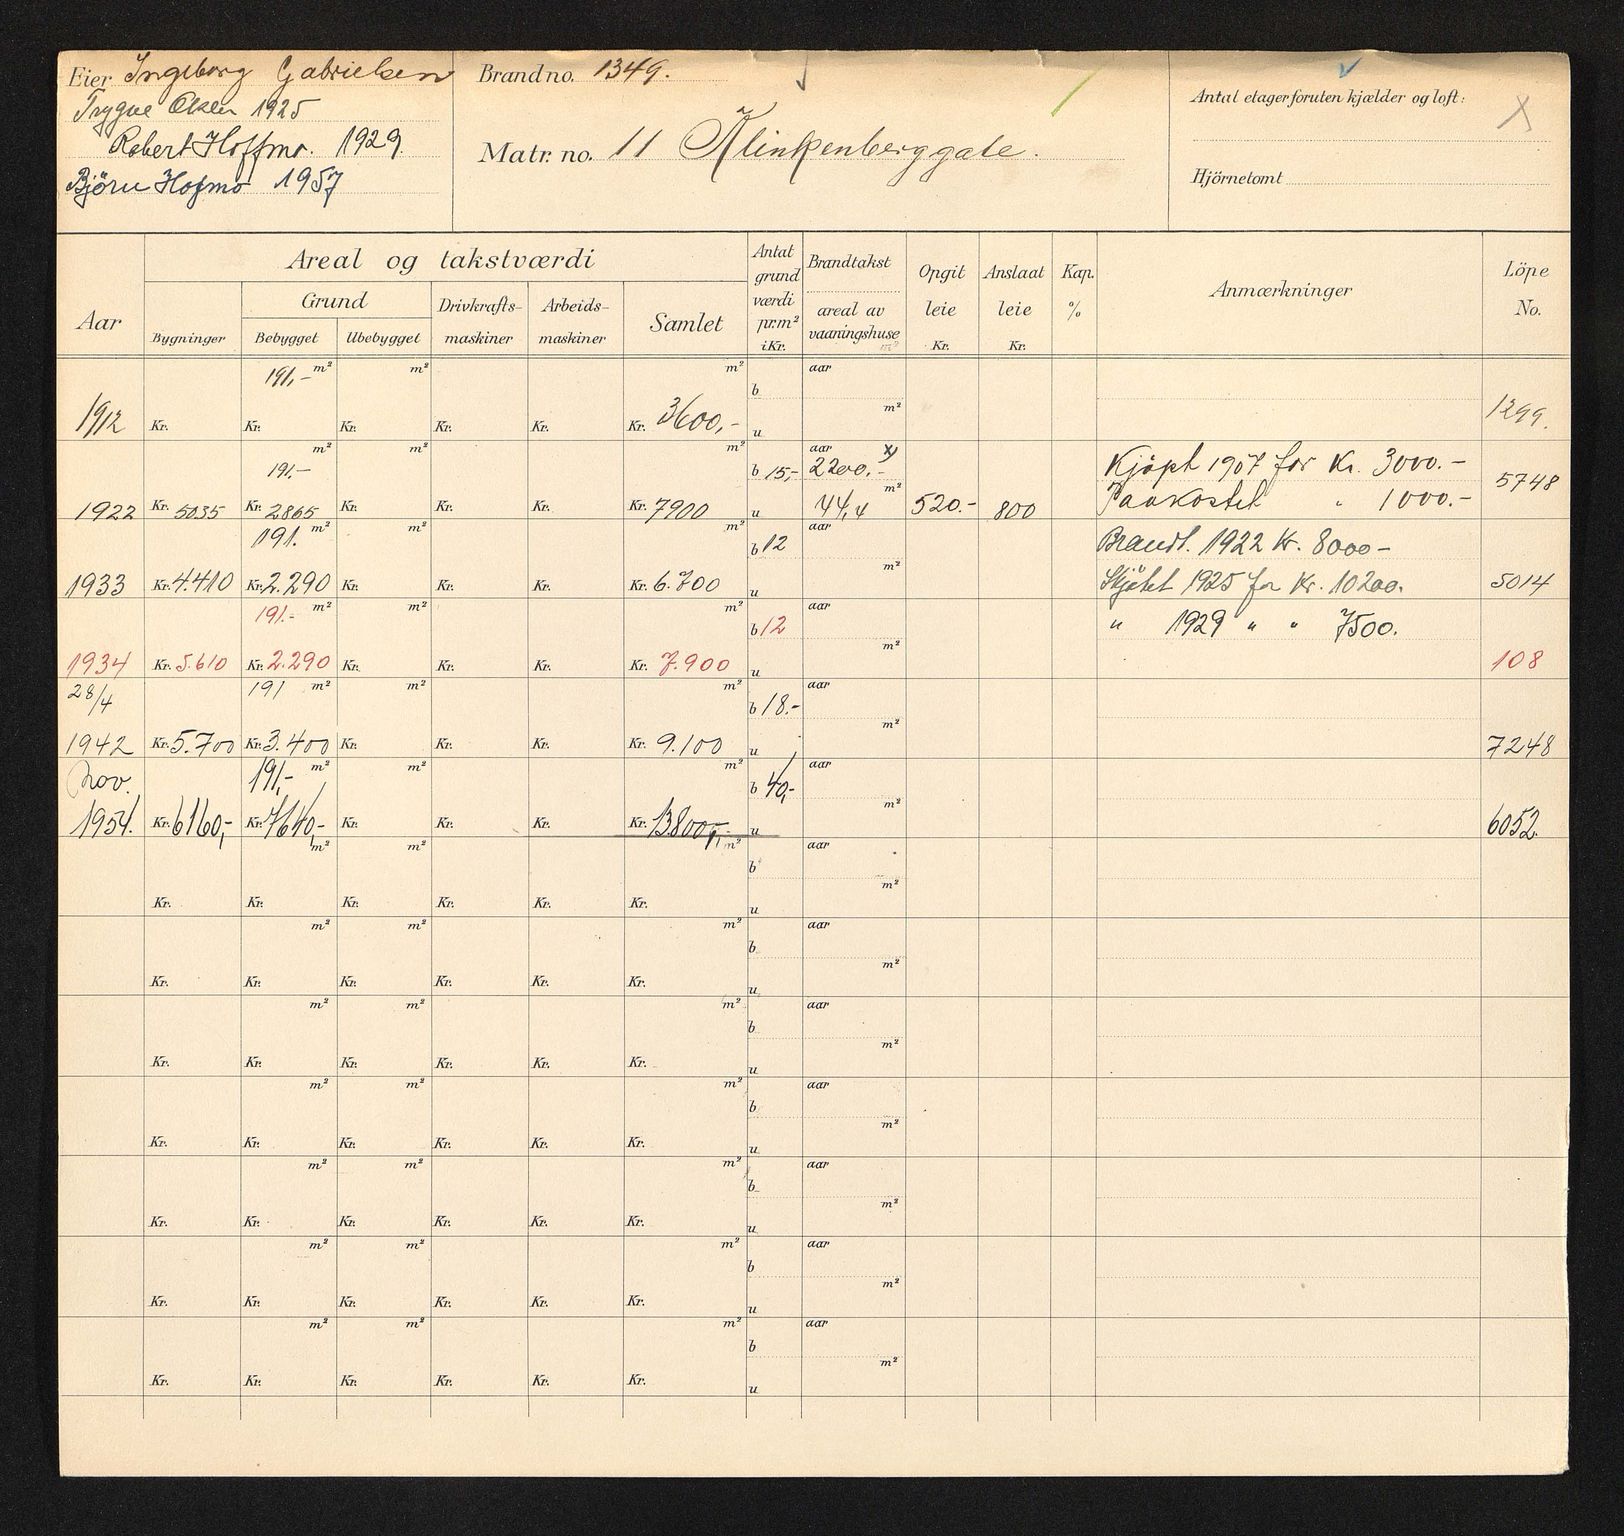 Eier Ingeborg Gabrielsen
Trygve Olsen 1925
Robert Hoffmo. 1929.
Björn Hofmo 1957
Brand no. 1349.
Matr. no. 11 Klinkenberggate.
Antal etager foruten kjælder og loft: X
Hjörnetomt
Aar
Areal og takstværdi
Bygninger
Grund
Bebygget Ubebygget
Drivkrafts-maskiner
Arbeids-maskiner
Samlet
Antat grund værdi pr. m² i Kr.
Brandtakst
areal av vaaningshuse m²
Opgit leie Kr.
Anslaat leie Kr.
Kap. %
Anmærkninger
Löpe No.
191,- m² m² m² b aar
1912 Kr. Kr. Kr. Kr. Kr. Kr. 3600,- u m² 1299.
191.- m² m² m² b 15,- aar 2200.- x) Kjöpt 1907 for Kr. 3000.-
1922 Kr. 5035 Kr. 2865 Kr. Kr. Kr. Kr. 7900 u 44,4 m² 520.- 800 Paakostet " 1000.- 5748
191. m² m² m² b 12 aar Brandt. 1922 Kr. 8000-
1933 Kr. 4.410 Kr. 2.290 Kr. Kr. Kr. Kr. 6.700 u m² Skjötet 1925 for Kr. 10200. 5014
191.- m² m² m² b 12 aar " 1929 " " 7500.
1934 Kr. 5.610 Kr. 2.290 Kr. Kr. Kr. Kr. 7.900 u m² 108
28/4 191 m² m² m² b 18.- aar
1942 Kr. 5.700 Kr. 3.400 Kr. Kr. Kr. Kr. 9.100 u m² 7248
Nov. 191,- m² m² m² b 40,- aar
1954. Kr. 6160,- Kr. 7640,- Kr. Kr. Kr. Kr. 13800,- u m² 6052.
m² m² m² b aar
Kr. Kr. Kr. Kr. Kr. Kr. u m²
m² m² m² b aar
Kr. Kr. Kr. Kr. Kr. Kr. u m²
m² m² m² b aar
Kr. Kr. Kr. Kr. Kr. Kr. u m²
m² m² m² b aar
Kr. Kr. Kr. Kr. Kr. Kr. u m²
m² m² m² b aar
Kr. Kr. Kr. Kr. Kr. Kr. u m²
m² m² m² b aar
Kr. Kr. Kr. Kr. Kr. Kr. u m²
m² m² m² b aar
Kr. Kr. Kr. Kr. Kr. Kr. u m²